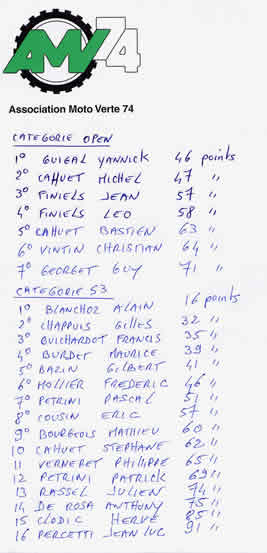 AMV74
Association Moto Verte 74
CATEGORIE OPEN
1° GUIGAL YANNICK 46 points
2° CAHUET MICHEL 47 "
3° FINIELS JEAN 57 "
4° FINIELS LEO 58 "
5° CAHUET BASTIEN 63 "
6° VINTIN CHRISTIAN 64 "
7° GEORGET GUY 71 "
CATEGORIE S3
1° BLANCHOZ ALAIN 16 points
2° CHAPPUIS GILLES 32 "
3° GUICHARDOT FRANCIS 35 "
4° BURDET MAURICE 39 "
5° BAZIN GILBERT 41 "
6° HOLLIER FREDERIC 46 "
7° PETRINI PASCAL 51 "
8° COUSIN ERIC 57 "
9° BOURGEOIS MATHIEU 60 "
10 CAHUET STEPHANE 62 "
11 VERNERET PHILIPPE 65 "
12 PETRINI PATRICK 69 "
13 RASSEL JULIEN 74 "
14 DE ROSA ANTHONY 75 "
15 CLODIC HERVE 85 "
16 PERCETTI JEAN LUC 91 "